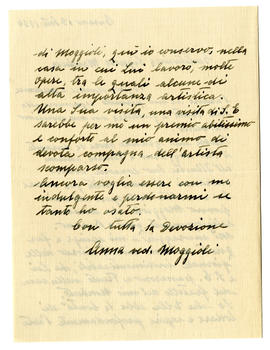 di Moggioli, quì io conservo, nella
casa in cui Lui lavorò, molte
opere, tra le quali alcune di
alta importanza artistica.
Una Sua visita, una visita di S. E
sarebbe per mè un premio
e conforto al mio animo di
devota compagna dell'artista
scomparso.
Ancora voglia essere con me
indulgente e perdonarmi se
tanto ho osato.
Con tutta la Devozione
Anna ved. Moggioli